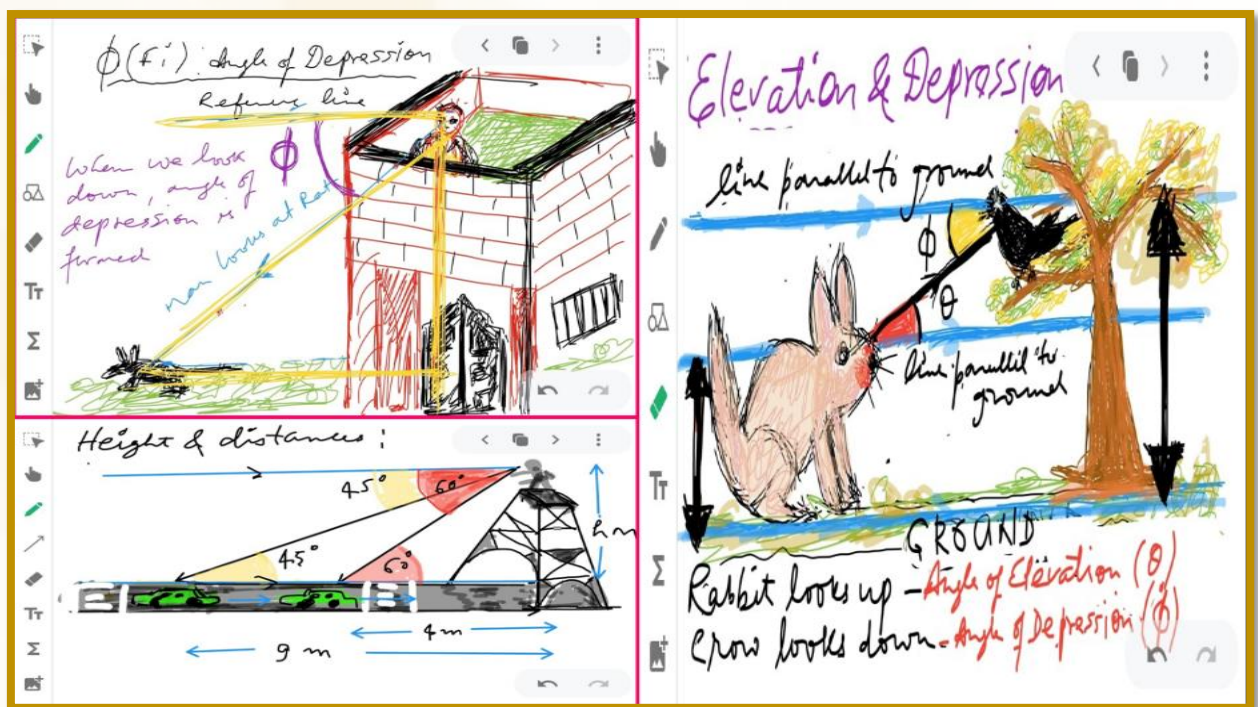 ϕ (Fi): Angle of Depression
Reference line
ϕ
When we look
down, angle of
depression is
formed
man looks at Rat
Height & distances:
45° 60°
45° 60°
h m
4 m
9 m
Elevation & Depression
line parallel to ground
ϕ
θ
line parallel to
ground
GROUND
Rabbit looks up - Angle of Elevation (θ)
Crow looks down - Angle of Depression (ϕ)
Tт
Σ
Tт
Σ
Tт
Σ